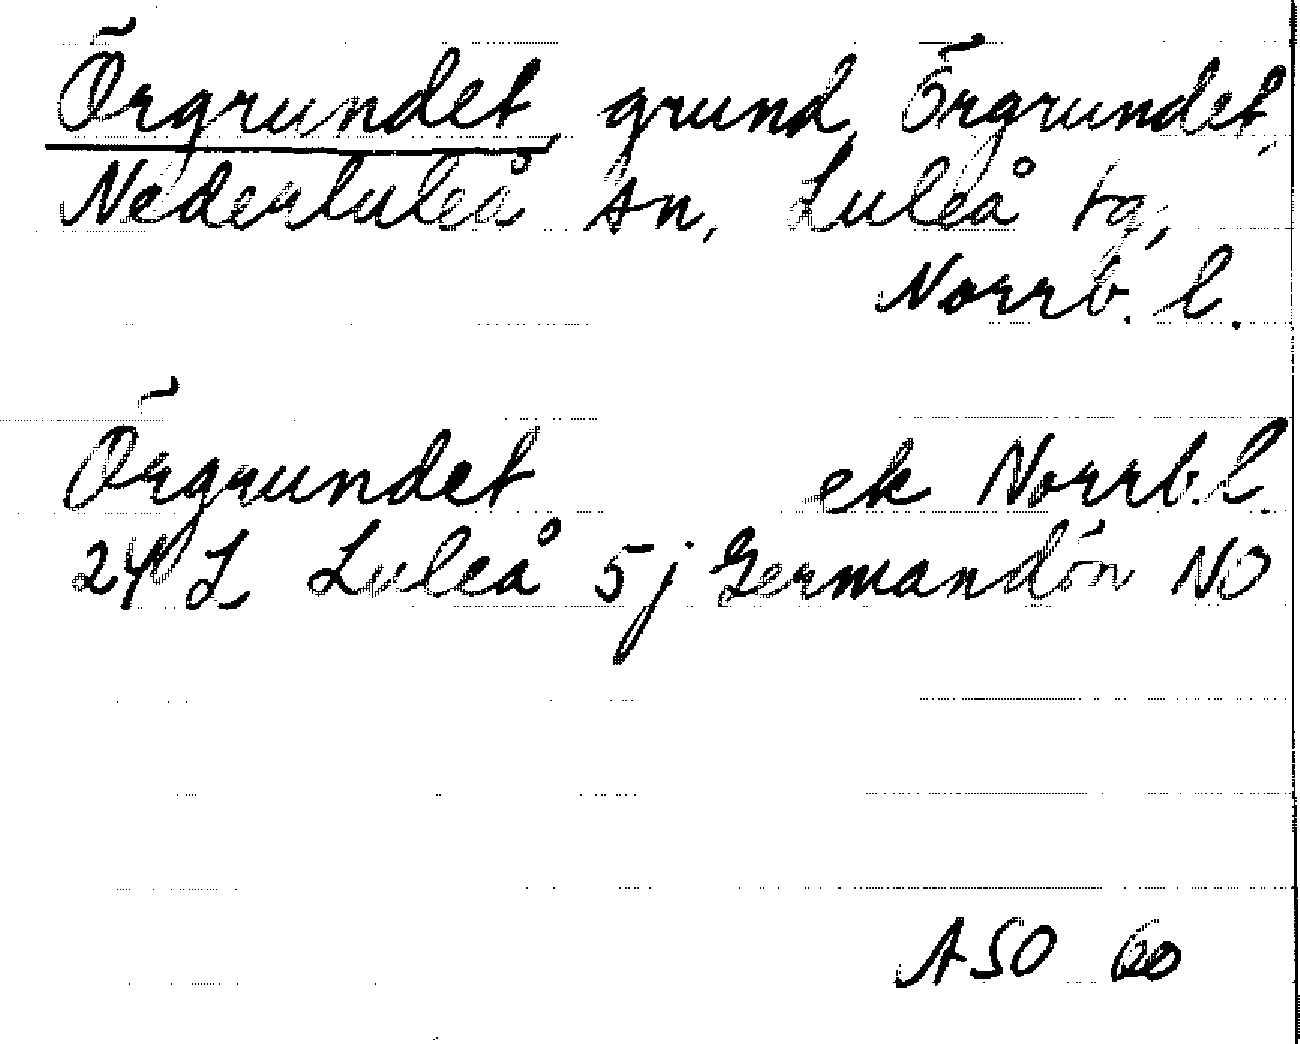 Örgrundet, grund, Örgrundet,
Nederluleå sn, Luleå tg,
Norrb. l.
Örgrundet ek Norrb. l.
24 L Luleå 5 j Germandön NO
ASO 60